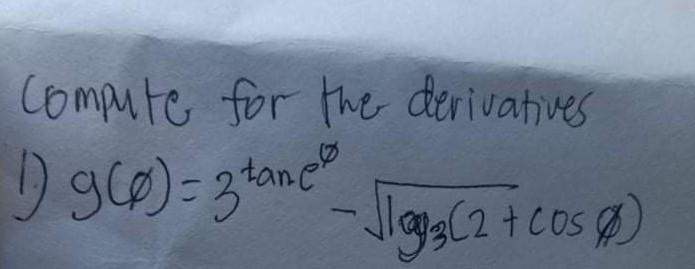 Compute for the derivatives
1) g(Ø) = 3^tan e^Ø - √log₃(2 + cos Ø)